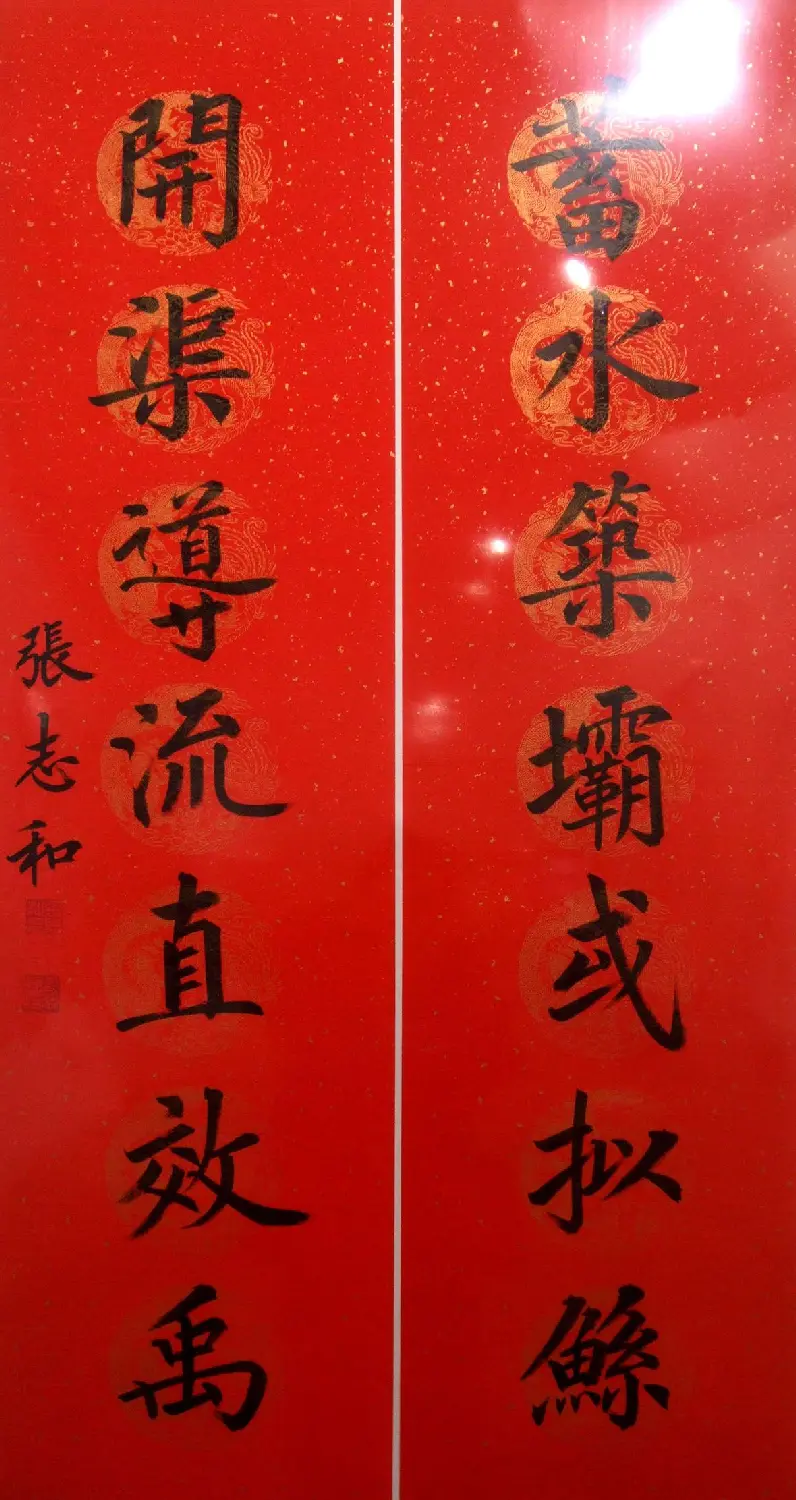 蓄水築壩或拟鯀
開渠導流直效禹
張志和